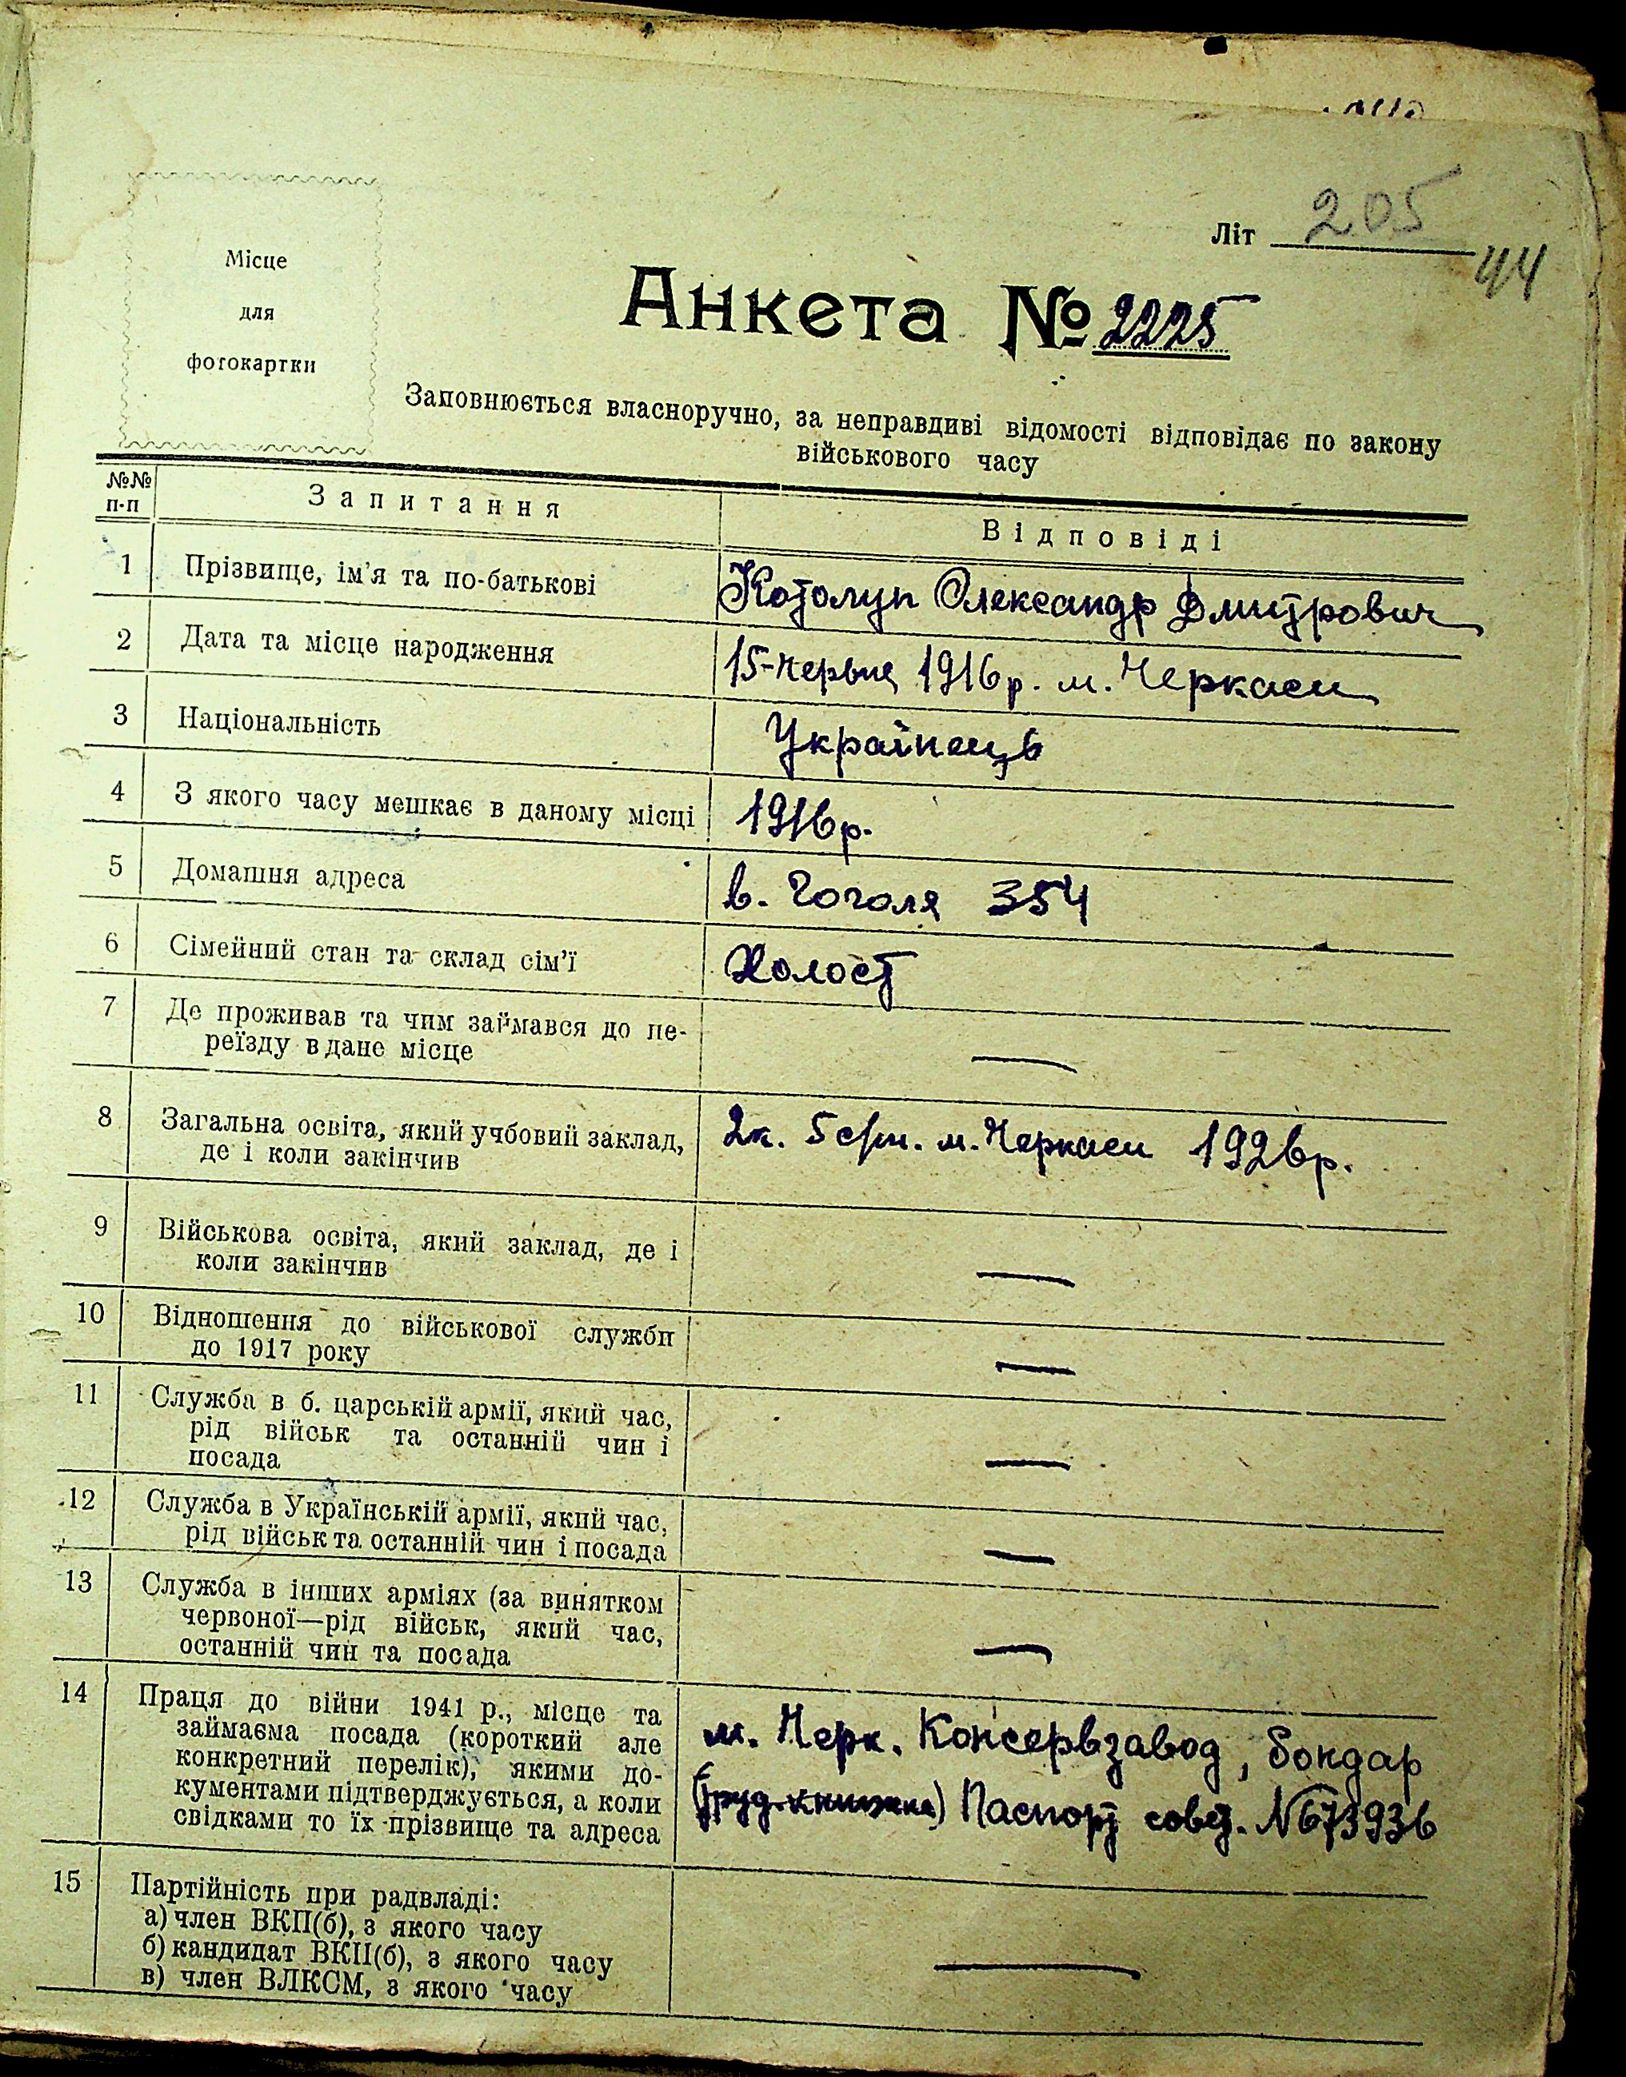 Літ 205
44
Місце
для
фотокартки
Анкета № 2225
Заповнюється власноручно, за неправдиві відомості відповідає по закону
військового часу
№№
п-п
Запитання
Відповіді
1
Прізвище, ім'я та по-батькові
Котолуп Олександр Дмитрович
2
Дата та місце народження
15-червня 1916р. м. Черкаси
3
Національність
Українець
4
З якого часу мешкає в даному місці
1916р.
5
Домашня адреса
в. Гоголя 354
6
Сімейний стан та склад сім'ї
Холост
7
Де проживав та чим займався до пе-
реїзду в дане місце
—
8
Загальна освіта, який учбовий заклад,
де і коли закінчив
2к. 5 с/ш. м. Черкаси 1926р.
9
Військова освіта, який заклад, де і
коли закінчив
—
10
Відношення до військової служби
до 1917 року
—
11
Служба в б. царській армії, який час,
рід військ та останній чин і
посада
—
12
Служба в Українській армії, який час,
рід військ та останній чин і посада
—
13
Служба в інших арміях (за винятком
червоної—рід військ, який час,
останній чин та посада
—
14
Праця до війни 1941 р., місце та
займаєма посада (короткий але
конкретний перелік), якими до-
кументами підтверджується, а коли
свідками то їх прізвище та адреса
м. Черк. Консервзавод, бондар
(Труд.книжка) Паспорт совет. №673936
15
Партійність при радвладі:
а) член ВКП(б), з якого часу
б) кандидат ВКП(б), з якого часу
в) член ВЛКСМ, з якого часу
—